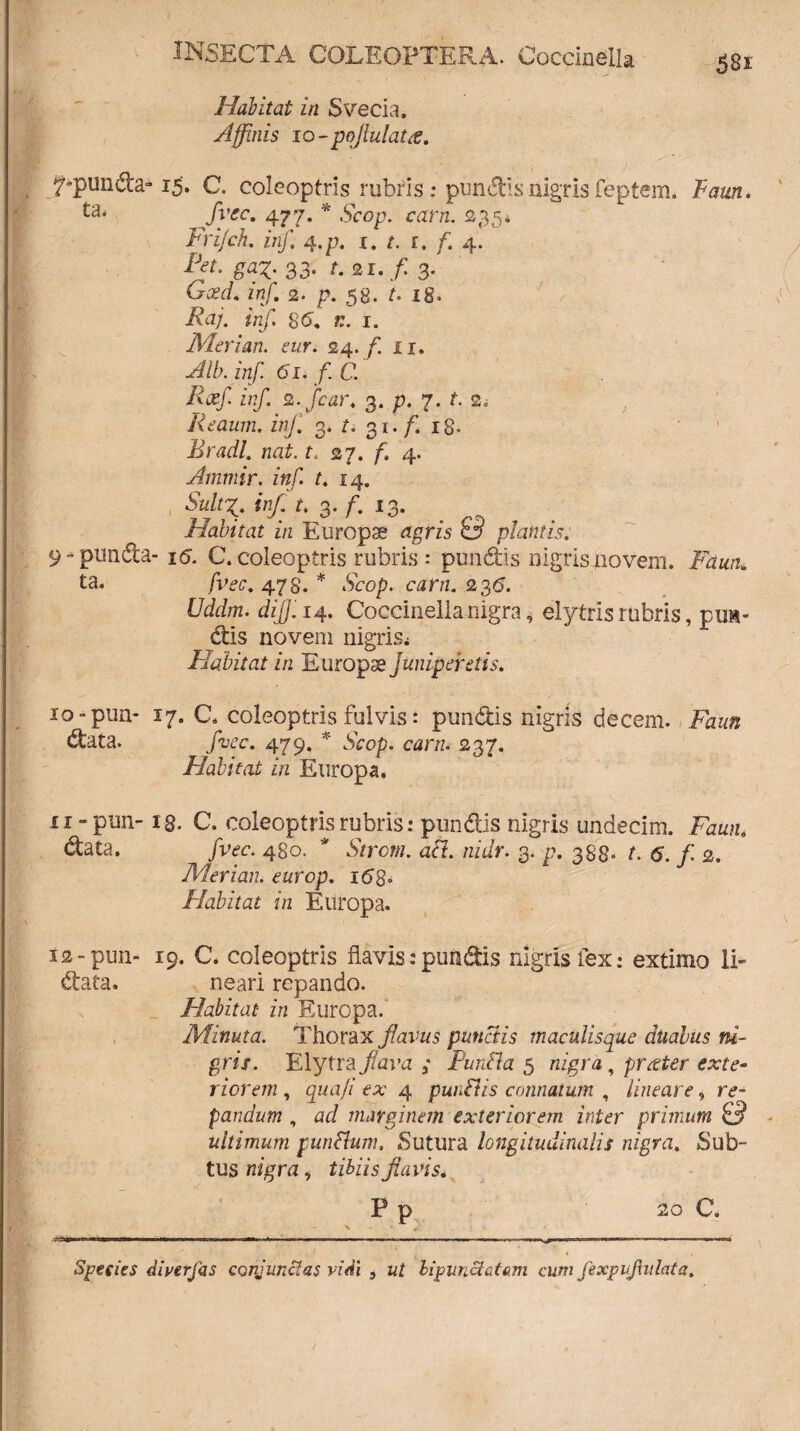 INSECTA COLEOPTERA. Coccinella 581
Habitat in Svecia.
Affinis 10-poſtulatæ.
7-puncta- 15. C. coleoptris rubris : punctis nigris ſeptem. Faun.
ta. ſvec. 477. * Scop. carn. 235.
Friſch. inſ. 4. p. 1. t. 1. f. 4.
Pet. gaz. 33. t. 21. f. 3.
Gœd. inſ. 2. p. 58. t. 18.
Raj. inſ. 86. n. 1.
Merian. eur. 24. f. 11.
Alb. inſ. 61. f. C.
Rœſ. inſ. 2. ſcar. 3. p. 7. t. 2.
Reaum. inſ. 3. t. 31. f. 18.
Bradl. nat. t. 27. f. 4.
Ammir. inſ. t. 14.
Sultz. inſ. t. 3. f. 13.
Habitat in Europæ agris & plantis.
9-puncta- 16. C. coleoptris rubris : punctis nigris novem. Faun.
ta. ſvec. 478. * Scop. carn. 236.
Uddm. diſſ. 14. Coccinella nigra, elytris rubris, pun-
ctis novem nigris.
Habitat in Europæ Juniperetis.
10-pun- 17. C. coleoptris fulvis: punctis nigris decem. Faun
ctata. ſvec. 479. * Scop. carn. 237.
Habitat in Europa.
11-pun- 18. C. coleoptris rubris: punctis nigris undecim. Faun.
ctata. ſvec. 480. * Strom. act. nidr. 3. p. 388. t. 6. f. 2.
Merian. europ. 168.
Habitat in Europa.
12-pun- 19. C. coleoptris flavis: punctis nigris ſex: extimo li-
ctata. neari repando.
Habitat in Europa.
Minuta. Thorax flavus punctis maculisque duabus ni-
gris. Elytra flava ; Puncta 5 nigra, præter exte-
riorem, quaſi ex 4 punctis connatum , lineare, re-
pandum , ad marginem exteriorem inter primum &
ultimum punctum. Sutura longitudinalis nigra. Sub-
tus nigra, tibiis flavis.
P p 20 C.
Species diverſas conjunctas vidi , ut bipunctatam cum ſexpuſtulata.